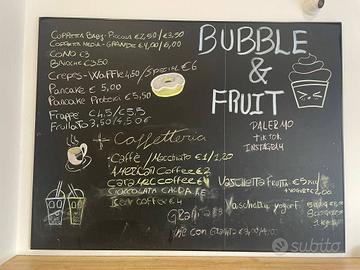 BUBBLE
&
FRUIT
PALERMO
TIK TOK
INSTAGRAM
COPPETTA BABY - PICCOLA €2,50 /€3.50
COPPETTA MEDIA - GRANDE €4,00/6,00
CONO €3
BRIOCHE €3.50
CREPES - WAFFLE 4,50 / SPECIAL €6
PANCAKE €5,00
PANCAKE PROTEICI €5,50
FRAPPE' €4,5/€5.5
FRULLATO 3,50/4,50€
Caffetteria
CAFFÈ / Macchiato €1/1,20
AMERICAN COFFEE €2
CARAMEL COFFEE €4
CIOCCOLATA CALDA €
COFFEE €4
GRANITA €3
con GRANITA
VASCHETTA FRUTTA €5
Vaschetta yogurt
subito